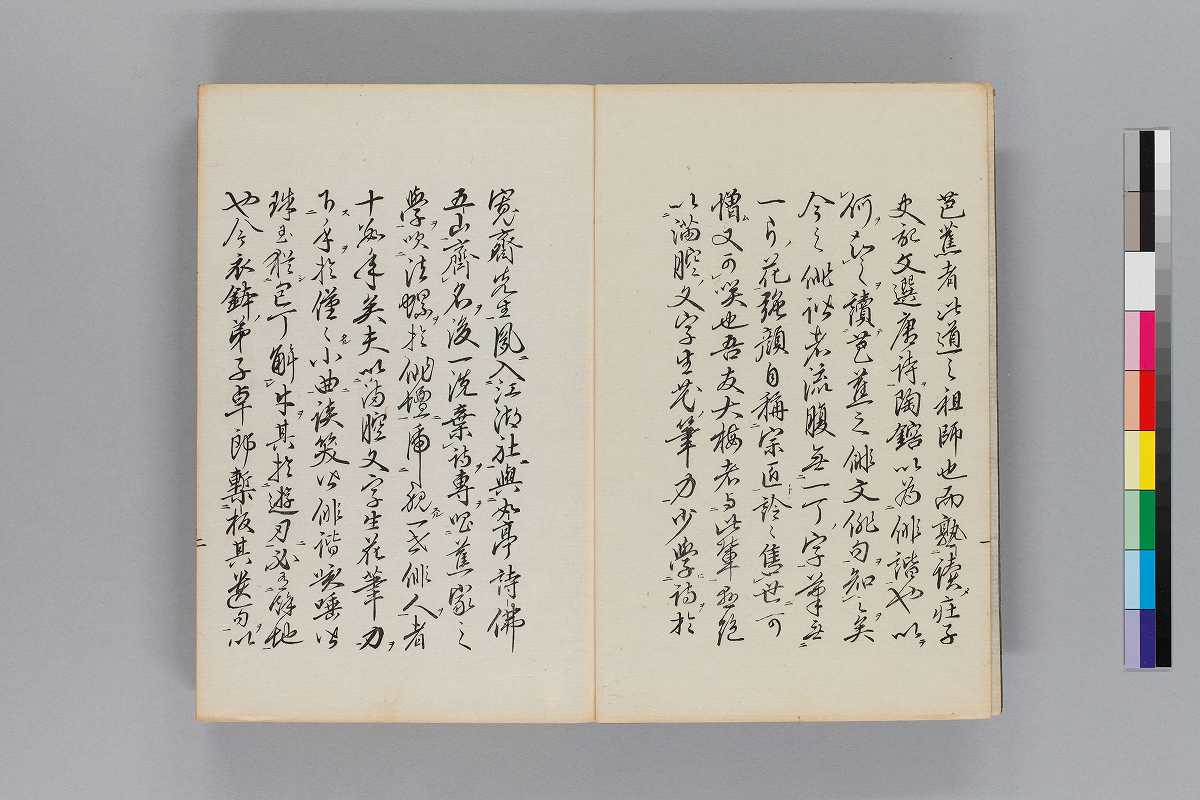 芭蕉者此道之祖師也而熟讀荘子
史記文選唐詩陶鎔以為俳諧也以
何知之讀芭蕉之俳文俳句知之矣
今之俳諧者流腹無一丁字筆無
一片花強顔自稱宗匠詅〻售世可
憎又可笑也吾友大梅者与此輩懸絶
以満腔文字生花筆力少學詩於
寛齋先生夙入江湖社與如亭詩佛
五山齊名後一洗棄詩專唱蕉家之
學吹法螺於俳壇虎視一世俳人者
十餘年矣夫以満腔文字生花筆力
下手於僅〻小曲談笑皆俳諧咳唾皆
珠玉猶包丁解牛其於遊刃必有餘地
也今衣鉢弟子卓郎槧板其遺句以